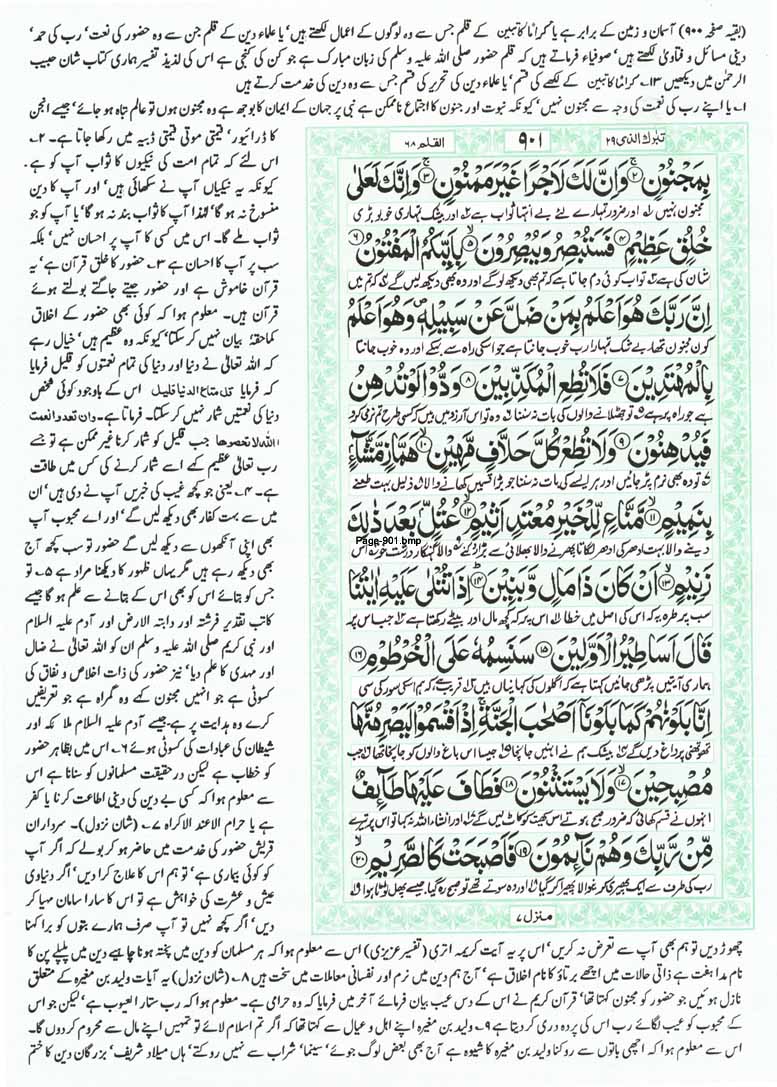 (بقیہ صفحہ ۹۰۰) آسمان و زمین کے برابر ہے یا کراماً کاتبین کے قلم جس سے وہ لوگوں کے اعمال لکھتے ہیں' یا علماء دین کے قلم جن سے وہ حضور کی نعت' رب کی حمد'
دینی مسائل و فتاویٰ لکھتے ہیں' صوفیاء فرماتے ہیں کہ قلم حضور صلی اللہ علیہ وسلم کی زبان مبارک ہے جو کن کی کنجی ہے اس کی لذیذ تفسیر ہماری کتاب شان حبیب
الرحمٰن میں دیکھیں ۱۳۔ کراماً کاتبین کے لکھے کی قسم' یا علماء دین کی تحریر کی قسم جس سے وہ دین کی خدمت کرتے ہیں
۱۔ یا اپنے رب کی نعمت کی وجہ سے مجنون نہیں' کیونکہ نبوت اور جنون کا اجتماع ناممکن ہے نبی پر جہان کے ایمان کا بوجھ ہے وہ مجنون ہوں تو عالم تباہ ہو جائے' جیسے انجن
کا ڈرائیور' قیمتی موتی قیمتی ڈبیہ میں رکھا جاتا ہے۔ ۲۔
اس لئے کہ تمام امت کی نیکیوں کا ثواب آپ کو ہے۔
کیونکہ یہ نیکیاں آپ نے سکھائی ہیں' اور آپ کا دین
منسوخ نہ ہو گا' لہٰذا آپ کا ثواب بند نہ ہو گا' یا آپ کو جو
ثواب ملے گا۔ اس میں کسی کا آپ پر احسان نہیں' بلکہ
سب پر آپ کا احسان ہے ۳۔ حضور کا خلق قرآن ہے' یہ
قرآن خاموش ہے اور حضور جیتے جاگتے بولتے ہوئے
قرآن ہیں۔ معلوم ہوا کہ کوئی بھی حضور کے اخلاق
کماحقہٗ بیان نہیں کر سکتا' کیونکہ وہ عظیم ہیں' خیال رہے
کہ اللہ تعالیٰ نے دنیا اور دنیا کی تمام نعمتوں کو قلیل فرمایا
کہ فرمایا قل متاع الدنیا قلیل اس کے باوجود کوئی شخص
دنیا کی نعمتیں شمار نہیں کر سکتا۔ فرماتا ہے۔ وان تعدوا نعمت
اللہ لا تحصوها جب قلیل کو شمار کرنا غیر ممکن ہے تو جسے
رب تعالیٰ عظیم کہے اسے شمار کرنے کی کس میں طاقت
ہے۔ ۴۔ یعنی جو کچھ غیب کی خبریں آپ نے دی ہیں' ان
میں سے بہت کفار بھی دیکھ لیں گے' اور اے محبوب آپ
بھی اپنی آنکھوں سے دیکھ لیں گے حضور تو سب کچھ آج
بھی دیکھ رہے ہیں مگر یہاں ظہور کا دیکھنا مراد ہے ۵۔ تو
جس کو بتائے اس کو بھی اس کے بتانے سے علم ہو گا جیسے
کاتب تقدیر فرشتہ اور دابتہ الارض اور آدم علیہ السلام
اور نبی کریم صلی اللہ علیہ و سلم ان کو اللہ تعالیٰ نے ضال
اور مہدی کا علم دیا' نیز حضور کی ذات اخلاص و نفاق کی
کسوٹی ہے جو انہیں مجنون کہے وہ گمراہ ہے جو تعریفیں
کرے وہ ہدایت پر ہے جیسے آدم علیہ السلام ملائکہ اور
شیطان کی عبادات کی کسوٹی ہوئے ۶۔ اس میں بظاہر حضور
کو خطاب ہے لیکن در حقیقت مسلمانوں کو سنانا ہے اس
سے معلوم ہوا کہ کسی بے دین کی دینی اطاعت کرنا یا کفر
ہے یا حرام الا عند الاکراہ ۷۔ (شان نزول)۔ سرداران
قریش حضور کی خدمت میں حاضر ہو کر بولے کہ اگر آپ
کو کوئی بیماری ہے' تو ہم اس کا علاج کرا دیں' اگر دنیاوی
عیش و عشرت کی خواہش ہے تو اس کا سارا سامان مہیا کر
دیں' اگر کچھ نہیں تو آپ صرف ہمارے بتوں کو برا کہنا
تبارك الذي ۲۹ ۹۰۱ القلم ۶۸
بِمَجْنُوْنٍ ۚ۲ وَاِنَّ لَكَ لَاَجْرًا غَيْرَ مَمْنُوْنٍ ۚ۳ وَاِنَّكَ لَعَلٰى
مجنون نہیں اور ضرور تمہارے لئے بے انتہا ثواب ہے اور بیشک تمہاری خوبو بڑی
خُلُقٍ عَظِيْمٍ ۴ فَسَتُبْصِرُ وَيُبْصِرُوْنَ ۵ بِاَيِّكُمُ الْمَفْتُوْنُ ۶
شان کی ہے تو اب کوئی دم جاتا ہے کہ تم بھی دیکھ لو گے اور وہ بھی دیکھ لیں گے کہ تم میں
اِنَّ رَبَّكَ هُوَ اَعْلَمُ بِمَنْ ضَلَّ عَنْ سَبِيْلِهٖ وَهُوَ اَعْلَمُ
کون مجنون تھا بے شک تمہارا رب خوب جانتا ہے جو اسکی راہ سے بہکے اور وہ خوب جانتا
بِالْمُهْتَدِيْنَ ۷ فَلَا تُطِعِ الْمُكَذِّبِيْنَ ۸ وَدُّوْا لَوْ تُدْهِنُ
ہے جو راہ پر ہے تو جھٹلانے والوں کی بات نہ سننا وہ تو اس آرزو میں ہیں کہ کسی طرح تم نرمی کرو
فَيُدْهِنُوْنَ ۹ وَلَا تُطِعْ كُلَّ حَلَّافٍ مَّهِيْنٍ ۱۰ هَمَّازٍ مَّشَّآءٍ
تو وہ بھی نرم پڑ جائیں اور ہر ایسے کی بات نہ سننا جو بڑا قسمیں کھانے والا ذلیل بہت طعنے
بِنَمِيْمٍ ۱۱ مَّنَّاعٍ لِّلْخَيْرِ مُعْتَدٍ اَثِيْمٍ ۱۲ عُتُلٍّ بَعْدَ ذٰلِكَ
Page-901.bmp
دینے والا بہت ادھر کی ادھر لگاتا پھرنے والا بھلائی سے بڑا روکنے والا گنہگار درشت خو اس
زَنِيْمٍ ۱۳ اَنْ كَانَ ذَا مَالٍ وَّبَنِيْنَ ۱۴ اِذَا تُتْلٰى عَلَيْهِ اٰيٰتُنَا
سب پر طرہ یہ کہ اس کی اصل میں خطا اس پر کہ کچھ مال اور بیٹے رکھتا ہے جب اس پر
قَالَ اَسَاطِيْرُ الْاَوَّلِيْنَ ۱۵ سَنَسِمُهٗ عَلَى الْخُرْطُوْمِ ۱۶
ہماری آیتیں پڑھی جائیں کہتا ہے کہ اگلوں کی کہانیاں ہیں قریب ہے کہ ہم اسکی سور کی سی
اِنَّا بَلَوْنٰهُمْ كَمَا بَلَوْنَآ اَصْحٰبَ الْجَنَّةِ ۚ اِذْ اَقْسَمُوْا لَيَصْرِمُنَّهَا
تھوتھنی پر داغ دیں گے بیشک ہم نے انہیں جانچا جیسا اس باغ والوں کو جانچا تھا جب
مُصْبِحِيْنَ ۱۷ وَلَا يَسْتَثْنُوْنَ ۱۸ فَطَافَ عَلَيْهَا طَآئِفٌ
انہوں نے قسم کھائی کہ ضرور صبح ہوتے اس کھیت کو کاٹ لیں گے اور انشاء اللہ نہ کہا تو اس پر تیرے
مِّنْ رَّبِّكَ وَهُمْ نَآئِمُوْنَ ۱۹ فَاَصْبَحَتْ كَالصَّرِيْمِ ۲۰
رب کی طرف سے ایک پھیری کرنے والا پھیرا کر گیا اور وہ سوتے تھے تو صبح رہ گیا جیسے پھل ٹوٹا ہوا
منزل ۷
چھوڑ دیں تو ہم بھی آپ سے تعرض نہ کریں' اس پر یہ آیت کریمہ اتری (تفسیر عزیزی) اس سے معلوم ہوا کہ ہر مسلمان کو دین میں پختہ ہونا چاہیے دین میں پلپلے پن کا
نام مداہنت ہے ذاتی حالات میں اچھے برتاؤ کا نام اخلاق ہے' آج ہم دین میں نرم اور نفسانی معاملات میں سخت ہیں ۸۔ (شان نزول) یہ آیات ولید بن مغیرہ کے متعلق
نازل ہوئیں جو حضور کو مجنون کہتا تھا' قرآن کریم نے اس کے دس عیب بیان فرمائے آخر میں فرمایا کہ وہ حرامی ہے۔ معلوم ہوا کہ رب ستار العیوب ہے' لیکن جو اس
کے محبوب کو عیب لگائے رب اس کی پردہ دری کر دیتا ہے ۹۔ ولید بن مغیرہ اپنے اہل و عیال سے کہتا تھا کہ اگر تم اسلام لائے تو تمہیں اپنے مال سے محروم کر دوں گا۔
اس سے معلوم ہوا کہ اچھی باتوں سے روکنا ولید بن مغیرہ کا شیوہ ہے آج بھی بعض لوگ جوئے' سینما' شراب سے نہیں روکتے' ہاں میلاد شریف' بزرگان دین کا ختم